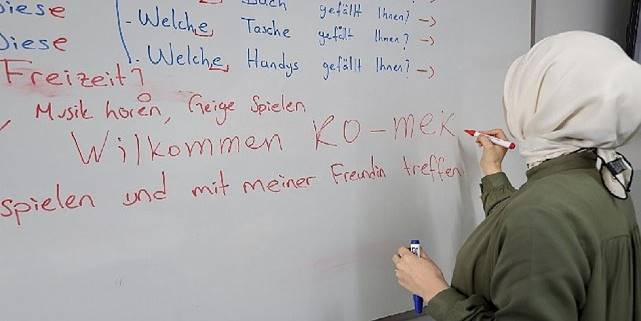 iese Buch gefällt Ihnen? →
- Welche Tasche gefällt Ihnen? →
Diese
- Welche Handys gefällt Ihnen? →
Freizeit?
Musik hören, Geige Spielen
Wilkommen KO-MEK
spielen und mit meiner Freundin treffen